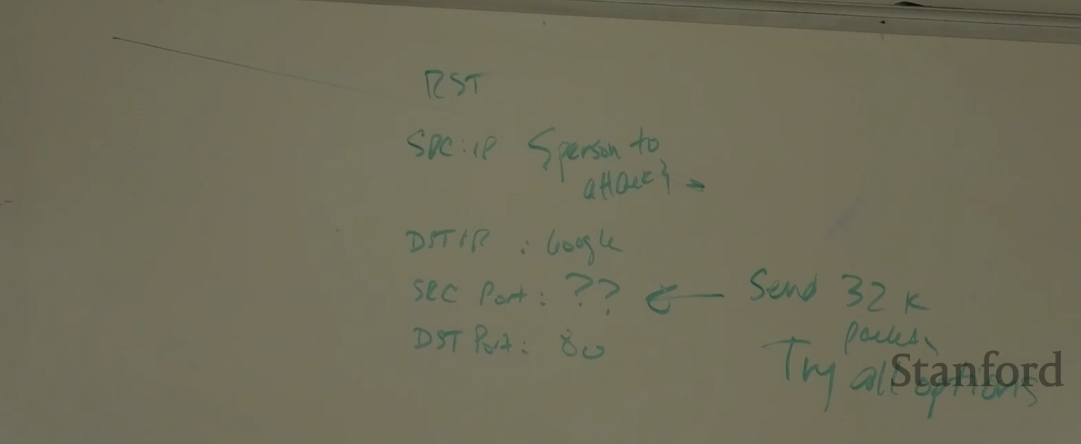 RST
SRC:IP {person to
attack}
DST IP : Google
SRC Port: ?? ← Send 32 k
packets
DST Port: 80
Try all options
Stanford